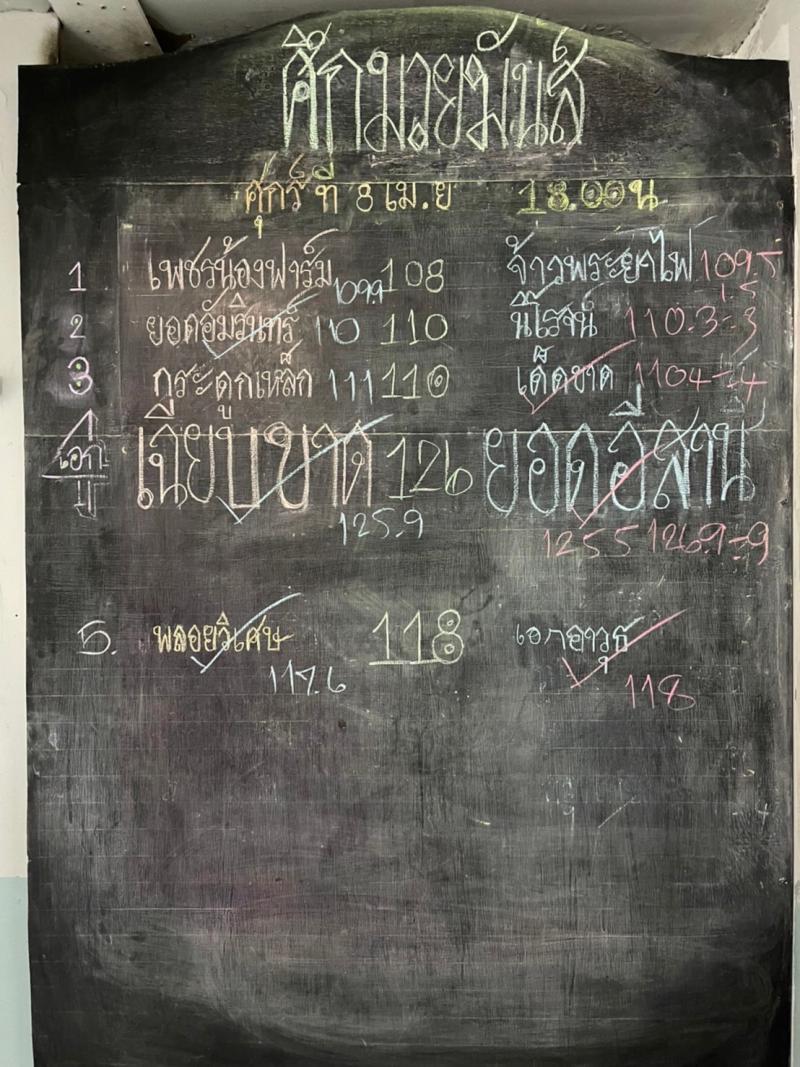 ศึกมวยมันส์
ศุกร์ ที่ 8 เม.ย 18.00 น
1 เพชรน้องฟาร์ม 109.9 108 จ้าวพระยาไฟ 109.5
1.5
2 ยอดอัมรินทร์ 110 110 นิโรจน์ 110.3-.3
3 กระดูกเหล็ก 111 110 เด็ดขาด 110.4-.4
เอก เฉียบขาด 126 ยอดอีสาน
125.9 125.5 126.9-.9
5. พลอยวิเศษ 118 เอกอาวุธ
117.6 118